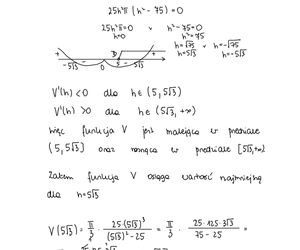 25h²π (h² - 75) = 0
25h²π = 0 v h² - 75 = 0
h = 0 h² = 75
h = √75 v h = -√75
h = 5√3 h = -5√3
+ - - + 
-5√3 0 5 5√3
V'(h) < 0 dla h ∈ (5, 5√3)
V'(h) > 0 dla h ∈ (5√3, +∞)
Więc funkcja V jest malejąca w przedziale
(5, 5√3) oraz rosnąca w przedziale [5√3, +∞)
Zatem funkcja V osiąga wartość najmniejszą
dla h = 5√3
V(5√3) = π/3 · 25·(5√3)³ / (5√3)² - 25 = π/3 · 25·125·3√3 / 75 - 25 =